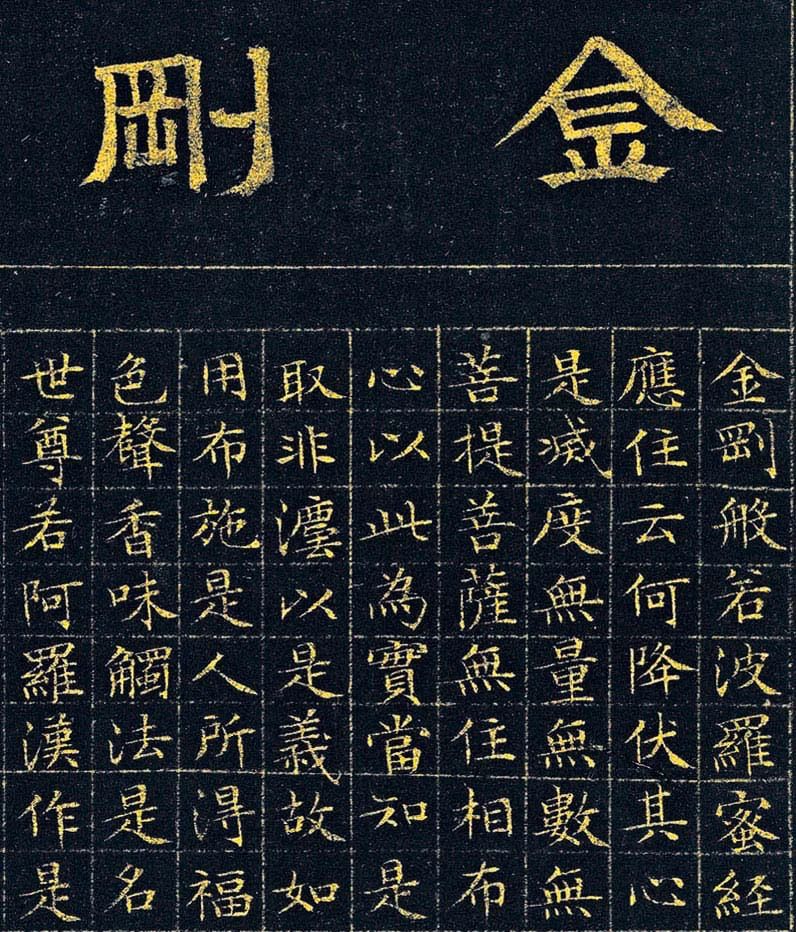 金剛
金剛般若波羅蜜経
應住云何降伏其心
是滅度無量無數無
菩提菩薩無住相布
心以此為實當知是
取非灋以是義故如
用布施是人所淂福
色聲香味觸法是名
世尊若阿羅漢作是